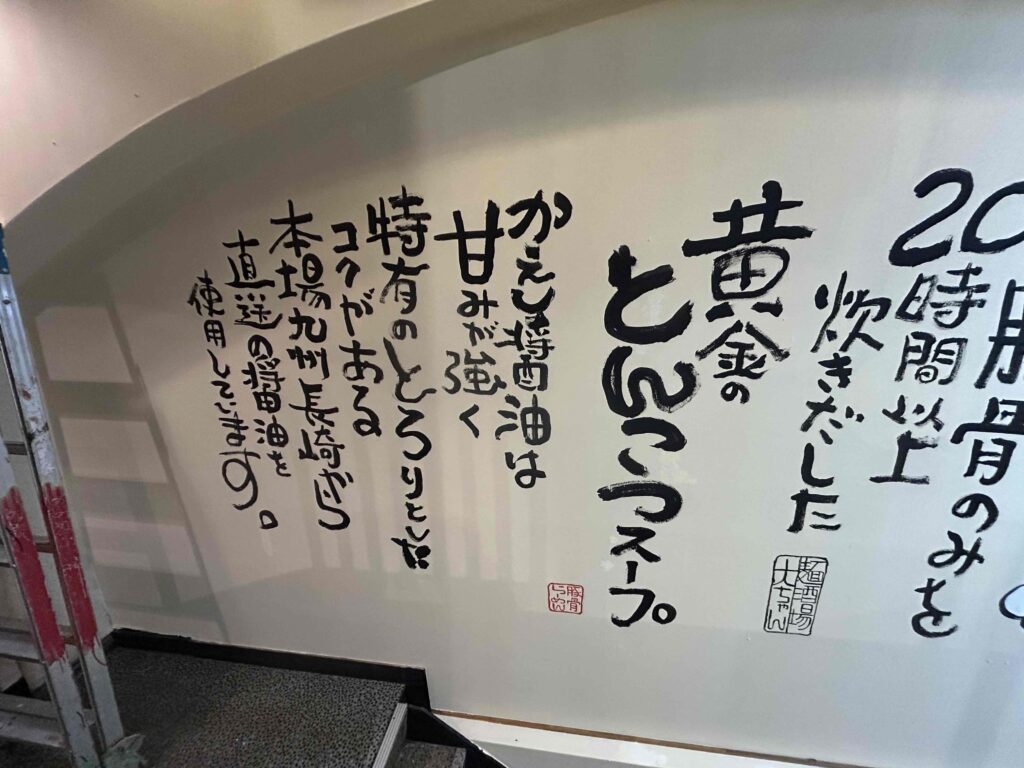 豚骨のみを
20時間以上
炊きだした
黄金の
とんこつスープ
麺酒場
大ちゃん
かえし醤油は
甘みが強く
特有のとろりとした
コクがある
本場九州長崎から
直送の醤油を
使用しています。
豚骨